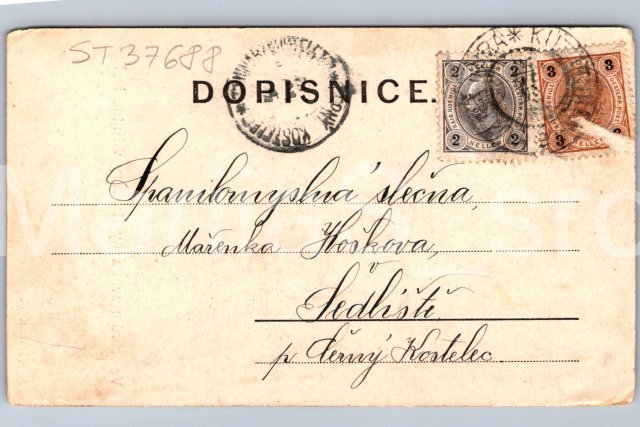 ST 37688
DOPISNICE.
2 2 3 3
2 2 3
HELLER HELLER
Spanilomyslná slečna
Mařenka Hošková,
v
Sedliště
p. Černý Kostelec